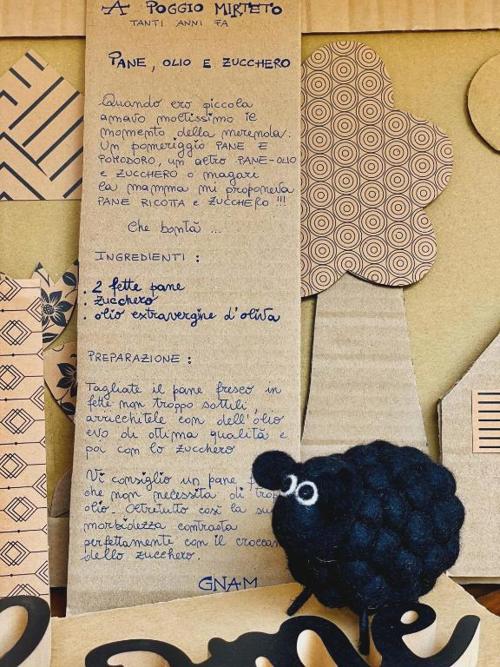 A POGGIO MIRTETO
TANTI ANNI FA
PANE, OLIO E ZUCCHERO
Quando ero piccola
amavo moltissimo il
momento della merenda.
Un pomeriggio PANE E
POMODORO, un altro PANE-OLIO
e ZUCCHERO o magari
la mamma mi proponeva
PANE RICOTTA e ZUCCHERO !!!
Che bontà ...
INGREDIENTI :
. 2 fette pane
. zucchero
. olio extravergine d'oliva
PREPARAZIONE :
Tagliate il pane fresco in
fette non troppo sottili,
arricchitele con dell'olio
evo di ottima qualità e
poi con lo zucchero
Vi consiglio un pane
che non necessita di
olio. Oltretutto così la
morbidezza contrasta
perfettamente con il
dello zucchero.
GNAM